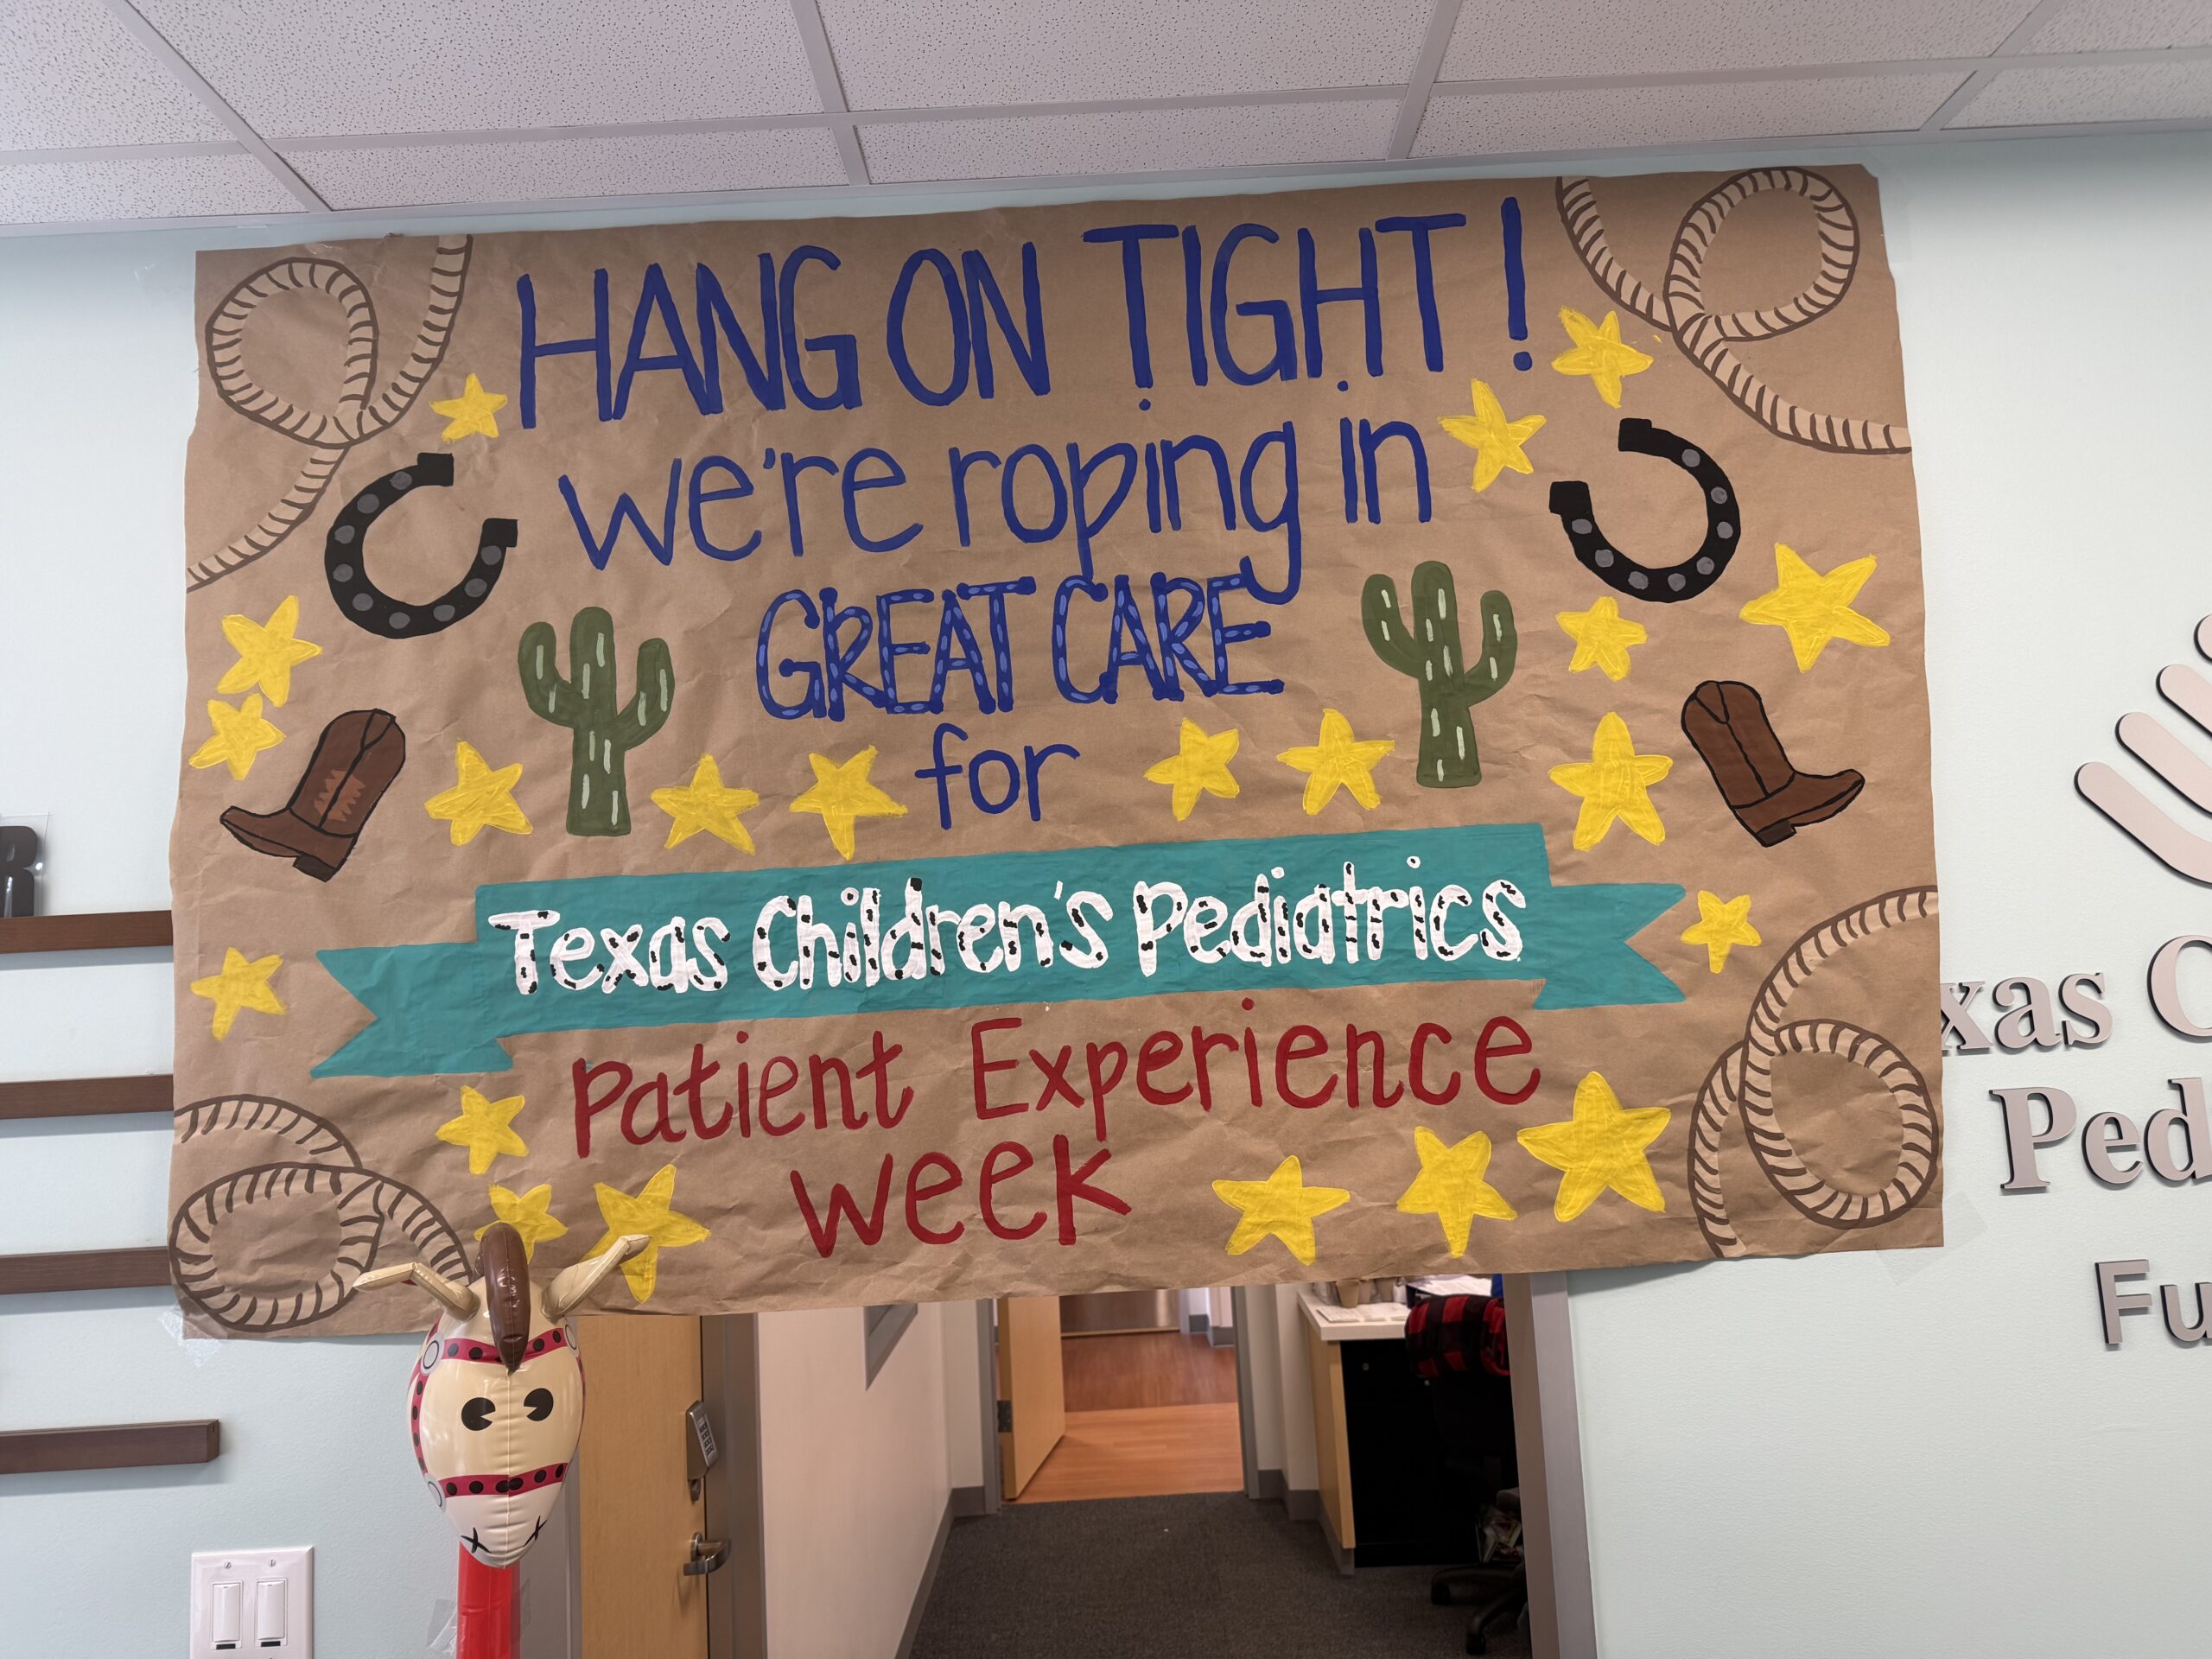 HANG ON TIGHT!
we're roping in
GREAT CARE
for
Texas Children's Pediatrics
Patient Experience
week
R
xas C
Ped
Fu